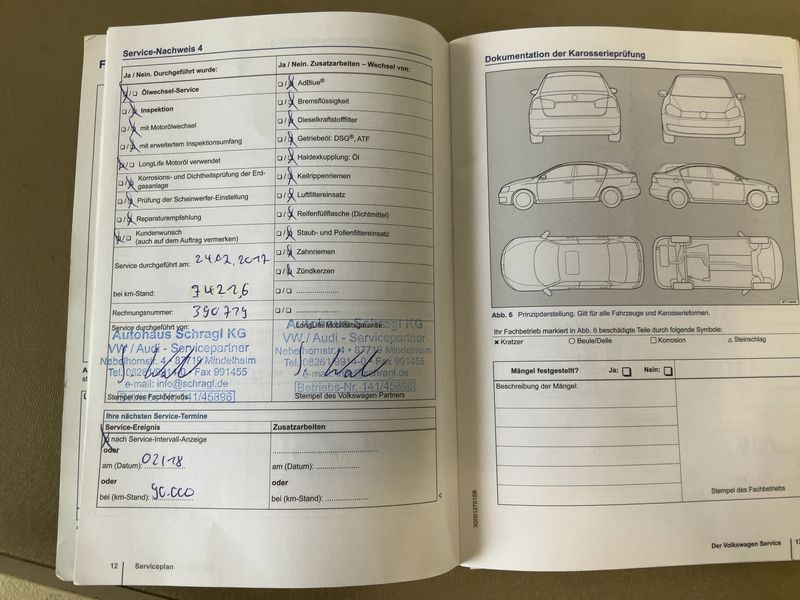 Service-Nachweis 4
Ja / Nein. Durchgeführt wurde:
Ölwechsel-Service
Inspektion
mit Motorölwechsel
mit erweitertem Inspektionsumfang
LongLife Motoröl verwendet
Korrosions- und Dichtheitsprüfung der Erd-
gasanlage
Prüfung der Scheinwerfer-Einstellung
Reparaturempfehlung
Kundenwunsch
(auch auf dem Auftrag vermerken)
Service durchgeführt am: 24.02.2017
bei km-Stand: 74226
Rechnungsnummer: 390779
Service durchgeführt von:
Autohaus Schragl KG
VW / Audi - Servicepartner
Nebelhornstr. 4 • 87719 Mindelheim
Tel. 08261/9914-0 • Fax 991455
e-mail: info@schragl.de
Betriebs-Nr. 141/45898
Stempel des Fachbetriebs
Ja / Nein. Zusatzarbeiten – Wechsel von:
AdBlue®
Bremsflüssigkeit
Dieselkraftstofffilter
Getriebeöl: DSG®, ATF
Haldexkupplung: Öl
Keilrippenriemen
Luftfiltereinsatz
Reifenfüllflasche (Dichtmittel)
Staub- und Pollenfiltereinsatz
Zahnriemen
Zündkerzen
LongLife Mobilitätsgarantie:
Autohaus Schragl KG
VW / Audi - Servicepartner
Nebelhornstr. 4 • 87719 Mindelheim
Tel. 08261/9914-0 • Fax 991455
e-mail: info@schragl.de
Betriebs-Nr. 141/45898
Stempel des Volkswagen Partners
Ihre nächsten Service-Termine
Service-Ereignis
nach Service-Intervall-Anzeige
oder
am (Datum): 02/18
oder
bei (km-Stand): 90.000
Zusatzarbeiten
am (Datum):
oder
bei (km-Stand):
12 Serviceplan
Dokumentation der Karosserieprüfung
Abb. 6 Prinzipdarstellung. Gilt für alle Fahrzeuge und Karosserieformen.
Ihr Fachbetrieb markiert in Abb. 6 beschädigte Teile durch folgende Symbole:
× Kratzer ○ Beule/Delle □ Korrosion △ Steinschlag
Mängel festgestellt? Ja: Nein:
Beschreibung der Mängel:
Stempel des Fachbetriebs
3G0012701SB
Der Volkswagen Service